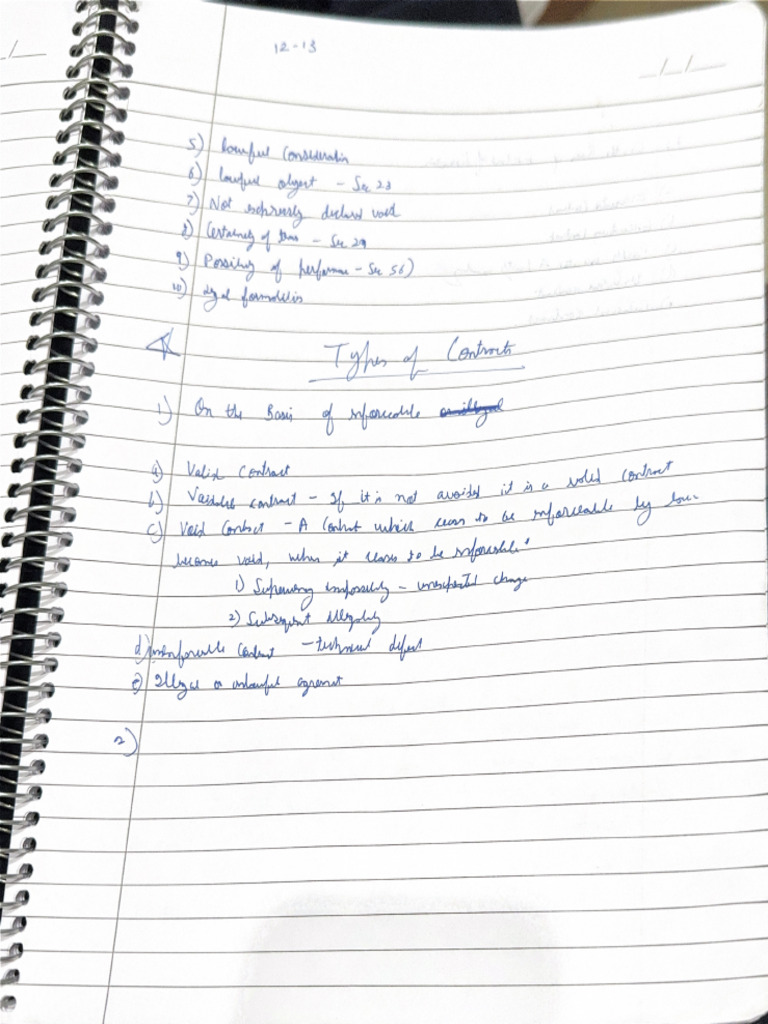 12-13
5) lawful consideration
6) lawful object - Sec 23
7) Not expressly declared void
8) Certainty of terms - Sec 29
9) Possibility of performance - Sec 56)
10) Legal formalities
Types of Contracts
1) On the Basis of enforceable
a) Valid Contract
b) Voidable contract - If it is not avoided it is a valid contract
c) Void Contract - A contract which ceases to be enforceable by law
become void, when it ceases to be enforceable.
1) Supervening impossibility - unexpected change
2) Subsequent illegality
d) unenforceable contract - technical defect
e) Illegal or unlawful agreement
2)